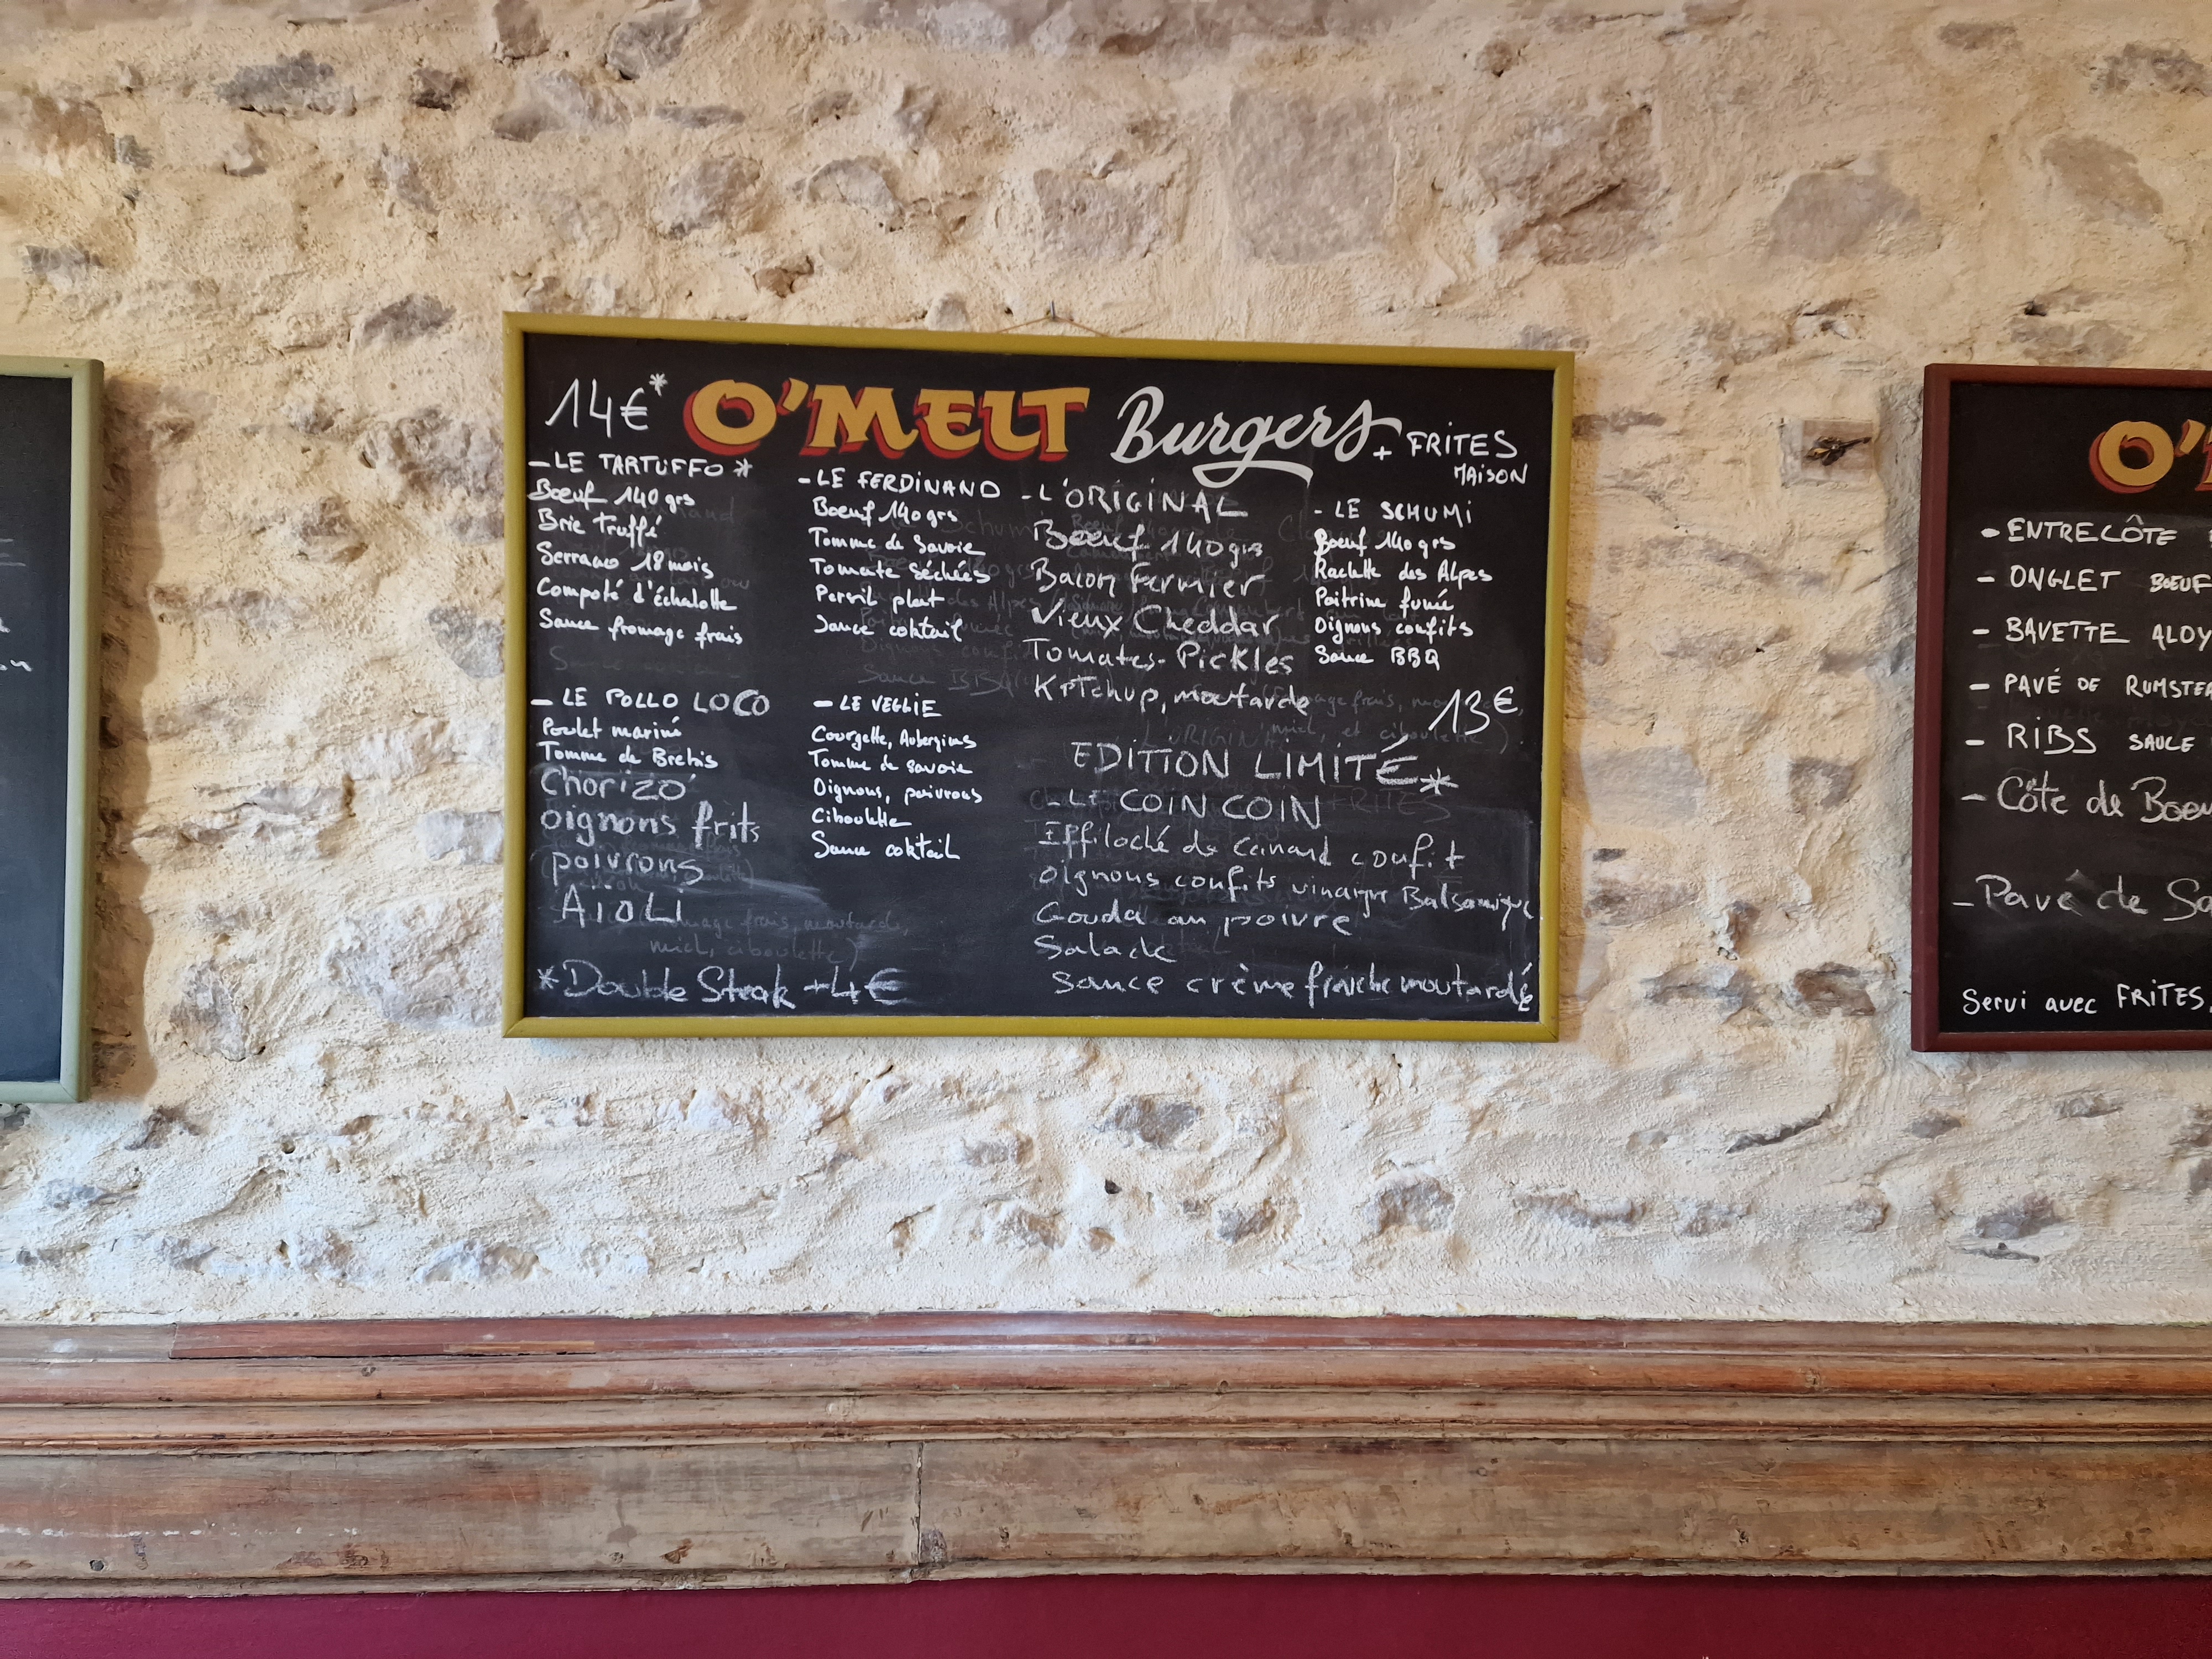 14€*
O'MELT Burgers + FRITES
MAISON
- LE TARTUFFO *
Bœuf 140 grs
Brie truffé
Serrano 18 mois
Compoté d'échalotte
Sauce fromage frais
- LE FERDINAND
Bœuf 140 grs
Tomme de Savoie
Tomate séchées
Persil plat
Sauce coktail
- L'ORIGINAL
Bœuf 140 grs
Bacon Fermier
Vieux Cheddar
Tomates - Pickles
Ketchup, moutarde
- LE SCHUMI
Bœuf 140 grs
Raclette des Alpes
Poitrine fumée
Oignons confits
Sauce BBQ
13€
- LE POLLO LOCO
Poulet mariné
Tomme de Brebis
Chorizo
oignons frits
poivrons
AïOLI
- LE VEGGIE
Courgette, Aubergines
Tomme de Savoie
Oignons, poivrons
Ciboulette
Sauce coktail
EDITION LIMITÉ *
- LE COIN COIN
Effiloché de canard confit
oignons confits vinaigre Balsamique
Gouda au poivre
Salade
Sauce crème fraiche moutardé
*Double Steak +4€
O'
- ENTRECÔTE
- ONGLET BŒUF
- BAVETTE ALOY
- PAVÉ DE RUMSTEA
- RIBS SAUCE
- Côte de Boeu
- Pavé de Sa
Servi avec FRITES,